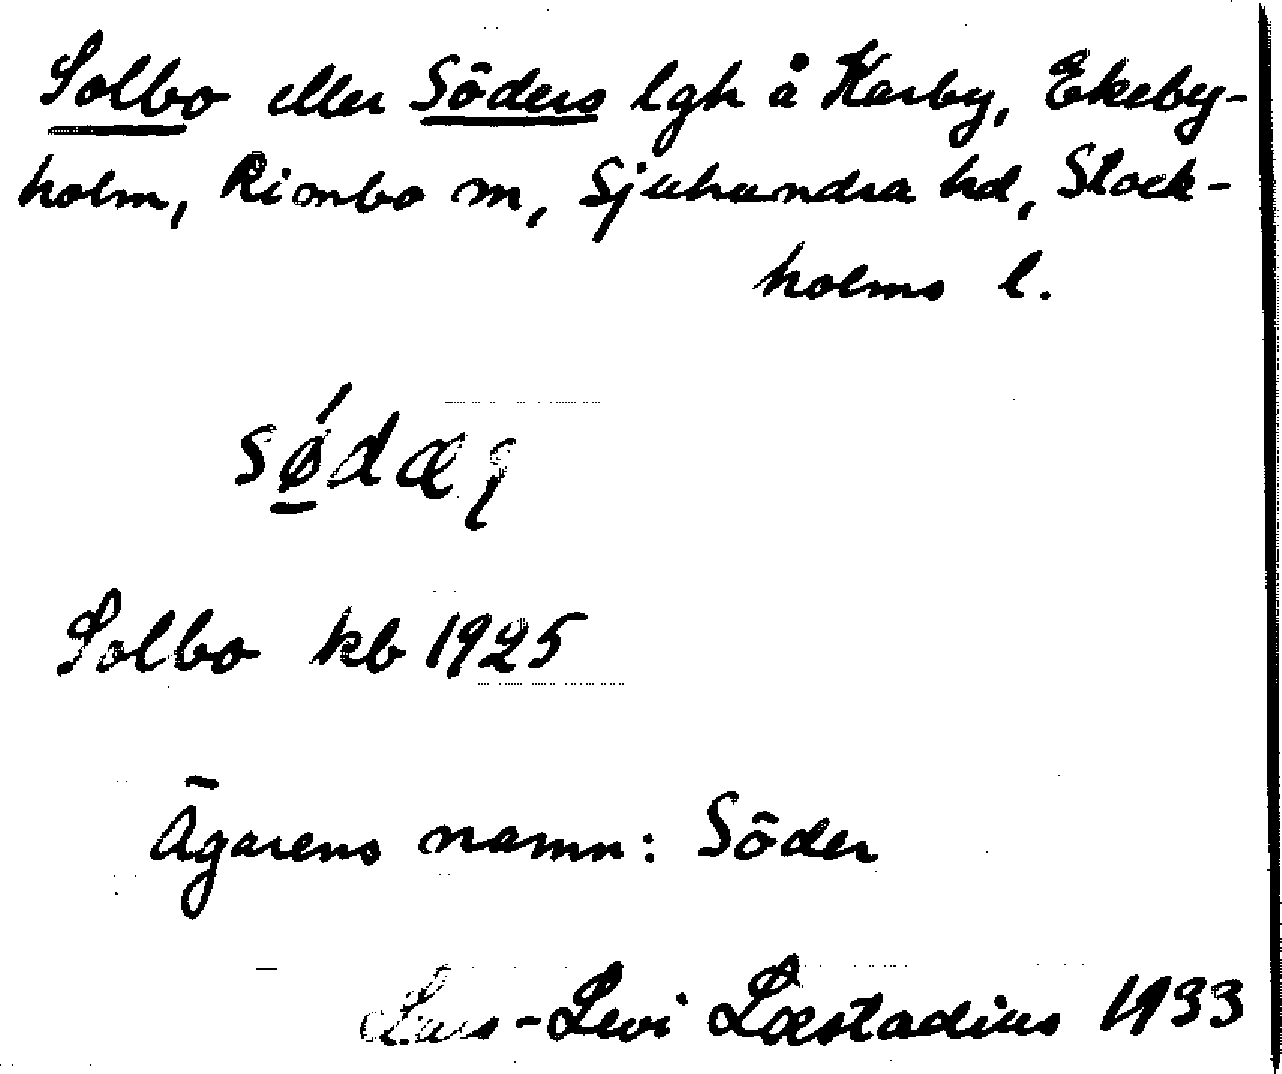 Solbo eller Söders lgh å Karby, Ekeby-
holm, Rimbo sn, Sjuhundra hd, Stock-
holms l.
Solbo kb 1925
Ägarens namn: Söder
Lars-Levi Læstadius 1933